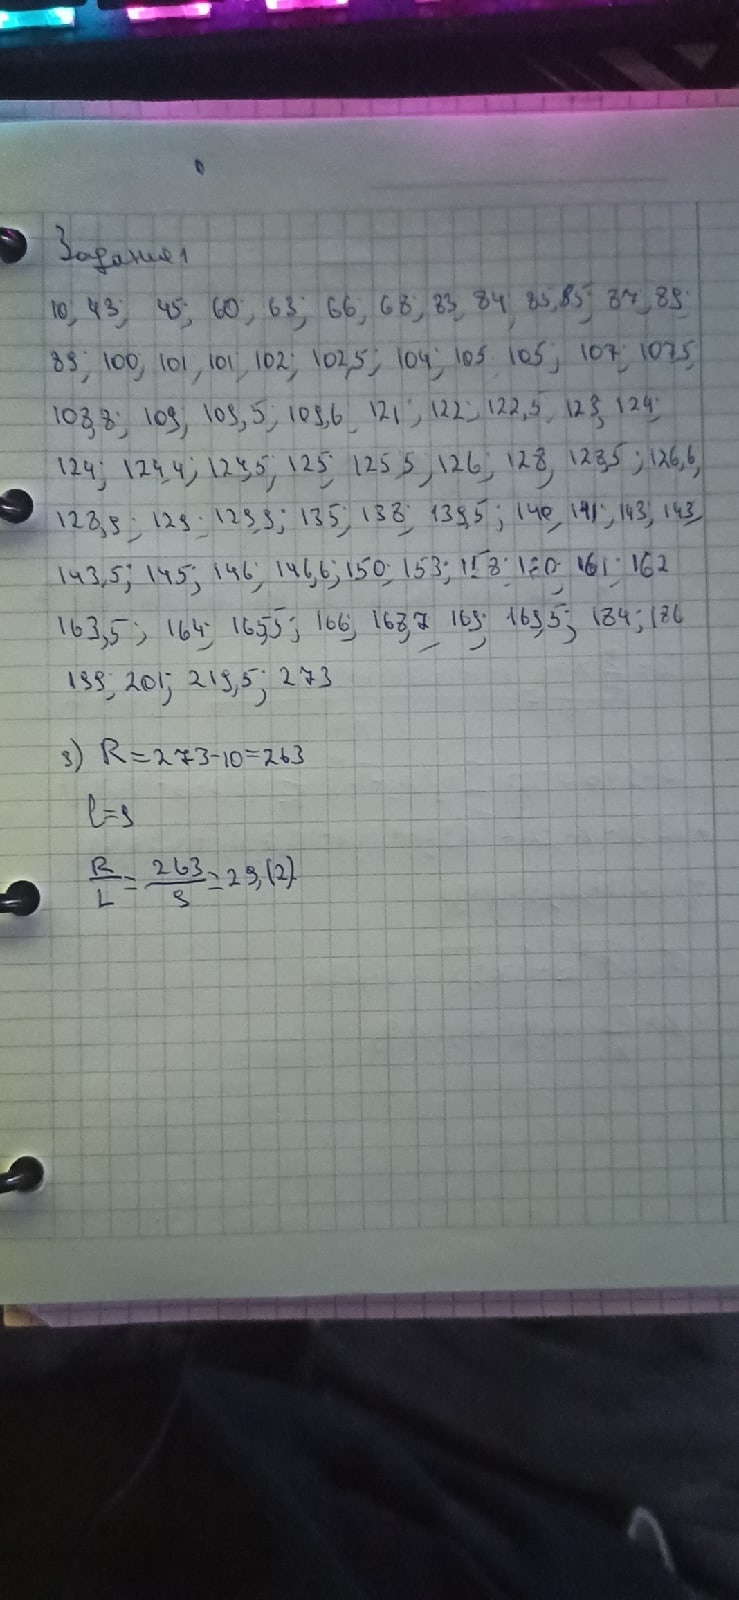 Задание 1
10; 43; 45; 60; 63; 66; 68; 83; 84; 85; 85; 87; 89;
89; 100; 101; 101; 102; 102,5; 104; 105; 105; 107; 107,5
108,8; 109; 109,5; 109,6; 121; 122; 122,5; 123; 124;
124; 124,4; 124,5; 125; 125,5; 126; 128; 128,5; 126,6;
128,9; 129; 129,9; 135; 138; 139,5; 140; 141; 143; 143
143,5; 145; 146; 146,6; 150; 153; 158; 160; 161; 162
163,5; 164; 165,5; 166; 168,7; 169; 169,5; 184; 186
199; 201; 219,5; 273
3) R=273-10=263
l=9
R/L = 263/9 = 29,(2)